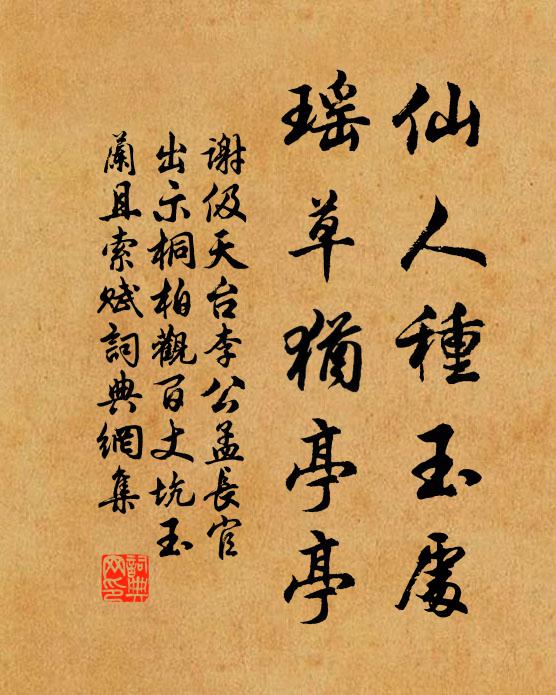 仙人種玉處
瑶草猶亭亭
謝伋天台李公孟長官
出示桐柏觀百丈坑玉
蘭且索賦詞典網集
詞典网印